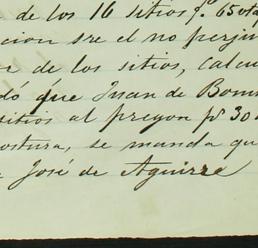 de los 16 sitios q.e 65 ota
cion sre el no perjui
de los sitios, calcu
dó que Juan de Bomu
sitios al pregon pr 30 d
ostura, se manda qu
José de Aguirre